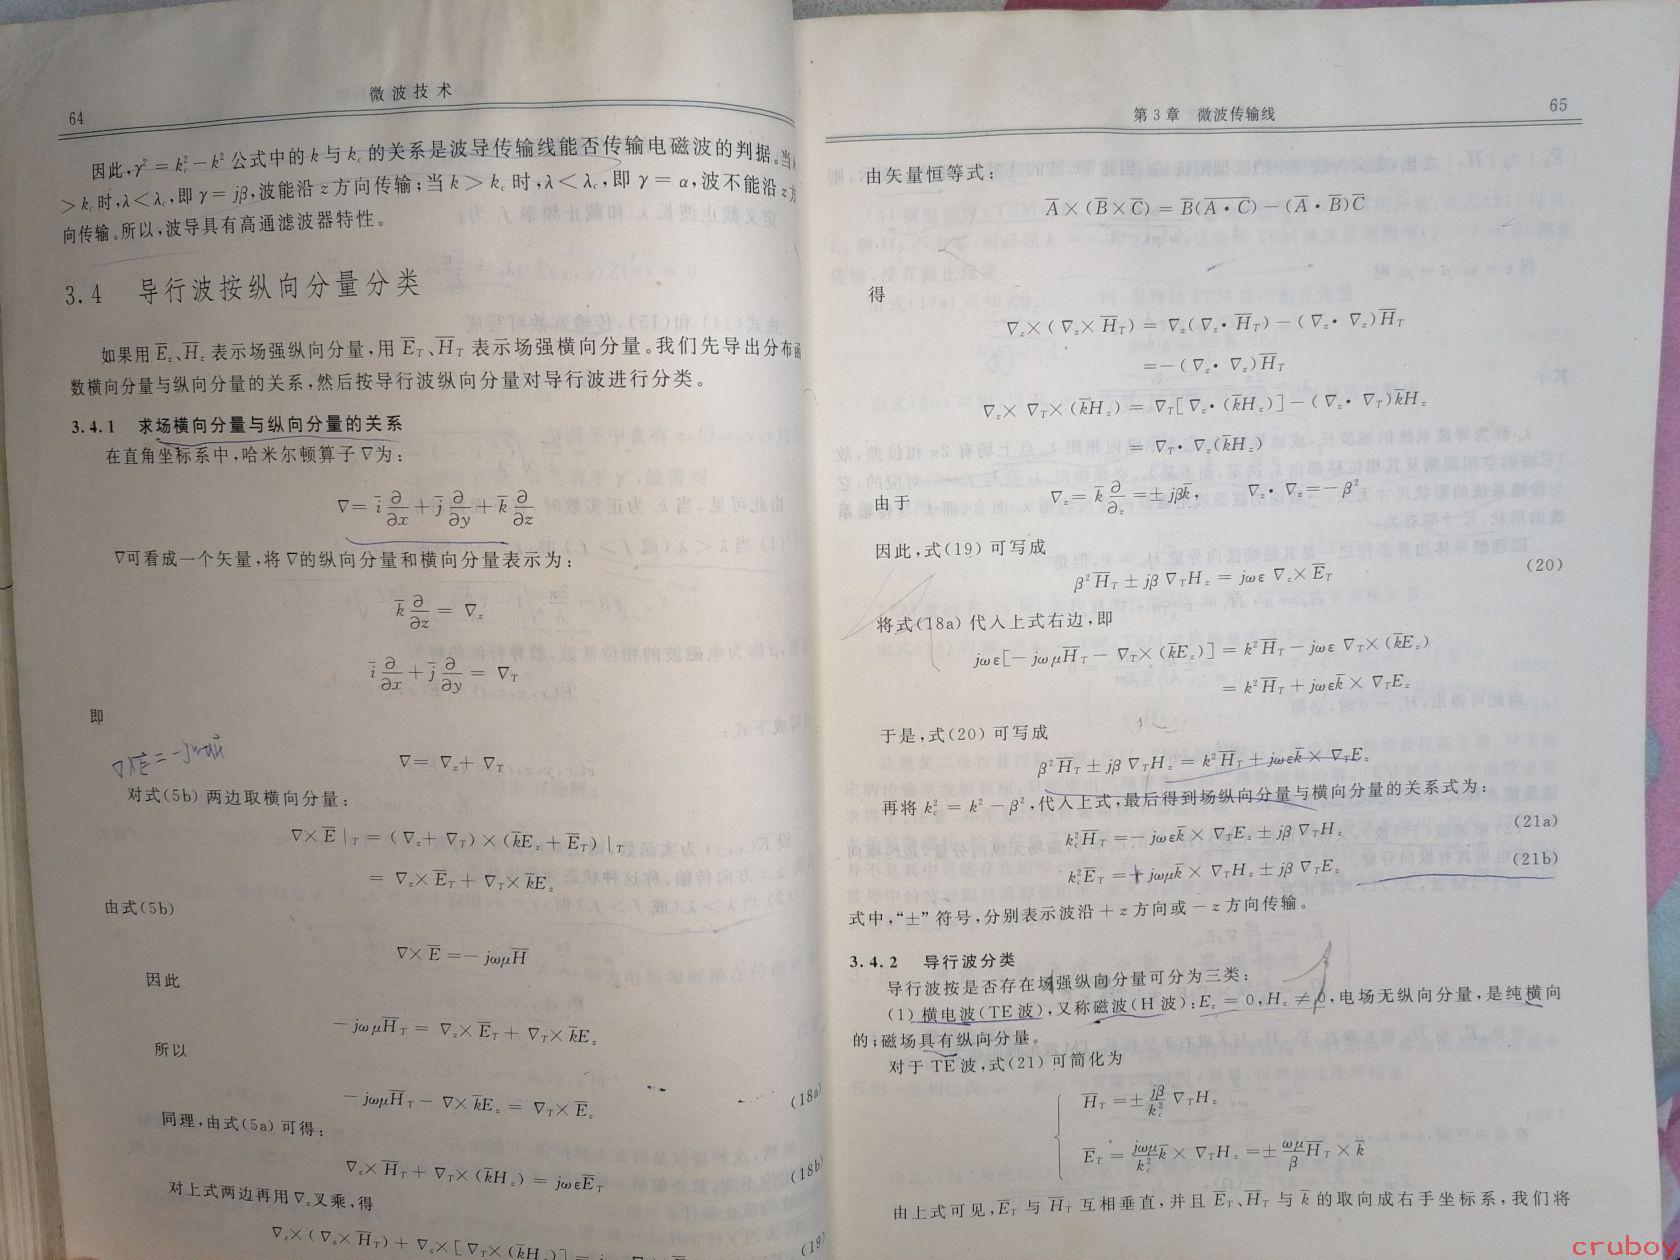 64
微波技术
因此,γ² = k꜀² − k² 公式中的 k 与 k꜀ 的关系是波导传输线能否传输电磁波的判据。当 k
> k꜀ 时,λ < λ꜀,即 γ = jβ,波能沿 z 方向传输;当 k > k꜀ 时,λ < λ꜀,即 γ = α,波不能沿 z 方
向传输。所以,波导具有高通滤波器特性。
3.4 导行波按纵向分量分类
如果用 E̅_z、H̅_z 表示场强纵向分量,用 E̅_T、H̅_T 表示场强横向分量。我们先导出分布函
数横向分量与纵向分量的关系,然后按导行波纵向分量对导行波进行分类。
3.4.1 求场横向分量与纵向分量的关系
在直角坐标系中,哈米尔顿算子 ∇ 为:
∇ = i̅ ∂/∂x + j̅ ∂/∂y + k̅ ∂/∂z
∇可看成一个矢量,将 ∇的纵向分量和横向分量表示为:
k̅ ∂/∂z = ∇_z
i̅ ∂/∂x + j̅ ∂/∂y = ∇_T
即
∇ = ∇_z + ∇_T
对式(5b) 两边取横向分量:
∇×E̅|_T = (∇_z + ∇_T) × (k̅E_z + E̅_T)|_T
= ∇_z×E̅_T + ∇_T×k̅E_z
由式(5b)
∇×E̅ = − jωμH̅
因此
− jωμH̅_T = ∇_z×E̅_T + ∇_T×k̅E_z
所以
− jωμH̅_T − ∇×k̅E_z = ∇_T×E̅_z (18a)
同理,由式(5a) 可得:
∇_z×H̅_T + ∇_T×(k̅H_z) = jωεE̅_T (18b)
对上式两边再用 ∇_z 叉乘,得
∇_z×(∇_z×H̅_T) + ∇_z×[∇_T×(k̅H_z)] = (19)
第3章 微波传输线
65
由矢量恒等式:
A̅×(B̅×C̅) = B̅(A̅·C̅) − (A̅·B̅)C̅
得
∇_z×(∇_z×H̅_T) = ∇_z(∇_z·H̅_T) − (∇_z·∇_z)H̅_T
= − (∇_z·∇_z)H̅_T
∇_z×∇_T×(k̅H_z) = ∇_T[∇_z·(k̅H_z)] − (∇_z·∇_T)k̅H_z
= ∇_T·∇_z(k̅H_z)
由于 ∇_z = k̅ ∂/∂_z = ± jβk̅, ∇_z·∇_z = − β²
因此,式(19) 可写成
β²H̅_T ± jβ∇_TH_z = jωε∇_z×E̅_T (20)
将式(18a) 代入上式右边,即
jωε[− jωμH̅_T − ∇_T×(k̅E_z)] = k²H̅_T − jωε∇_T×(k̅E_z)
= k²H̅_T + jωεk̅×∇_TE_z
于是,式(20) 可写成
β²H̅_T ± jβ∇_TH_z = k²H̅_T + jωεk̅×∇_TE_z
再将 k꜀² = k² − β²,代入上式,最后得到场纵向分量与横向分量的关系式为:
k꜀²H̅_T = − jωεk̅×∇_TE_z ± jβ∇_TH_z (21a)
k꜀²E̅_T = + jωμk̅×∇_TH_z ± jβ∇_TE_z (21b)
式中,“±” 符号,分别表示波沿 + z 方向或 − z 方向传输。
3.4.2 导行波分类
导行波按是否存在场强纵向分量可分为三类:
(1) 横电波(TE 波),又称磁波(H 波):E_z = 0,H_z ≠ 0,电场无纵向分量,是纯横向
的;磁场具有纵向分量。
对于 TE 波,式(21) 可简化为
H̅_T = ± jβ/k꜀² ∇_TH_z
E̅_T = jωμ/k꜀² k̅×∇_TH_z = ± ωμ/β H̅_T×k̅
由上式可见,E̅_T 与 H̅_T 互相垂直,并且 E̅_T、H̅_T 与 k̅ 的取向成右手坐标系,我们将
cruboy